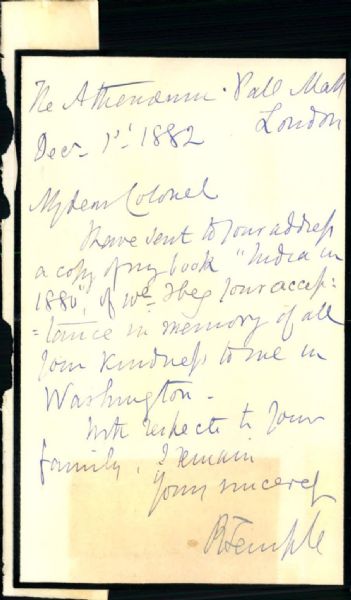 The Athenaeum. Pall Mall
London
Decr 1st 1882
My dear Colonel
I have sent to your address
a copy of my book "India in
1880", of wh. I beg your accep:
=tance in memory of all
your kindness to me in
Washington -
With respects to your
family, I remain
Yours sincerely
R Temple